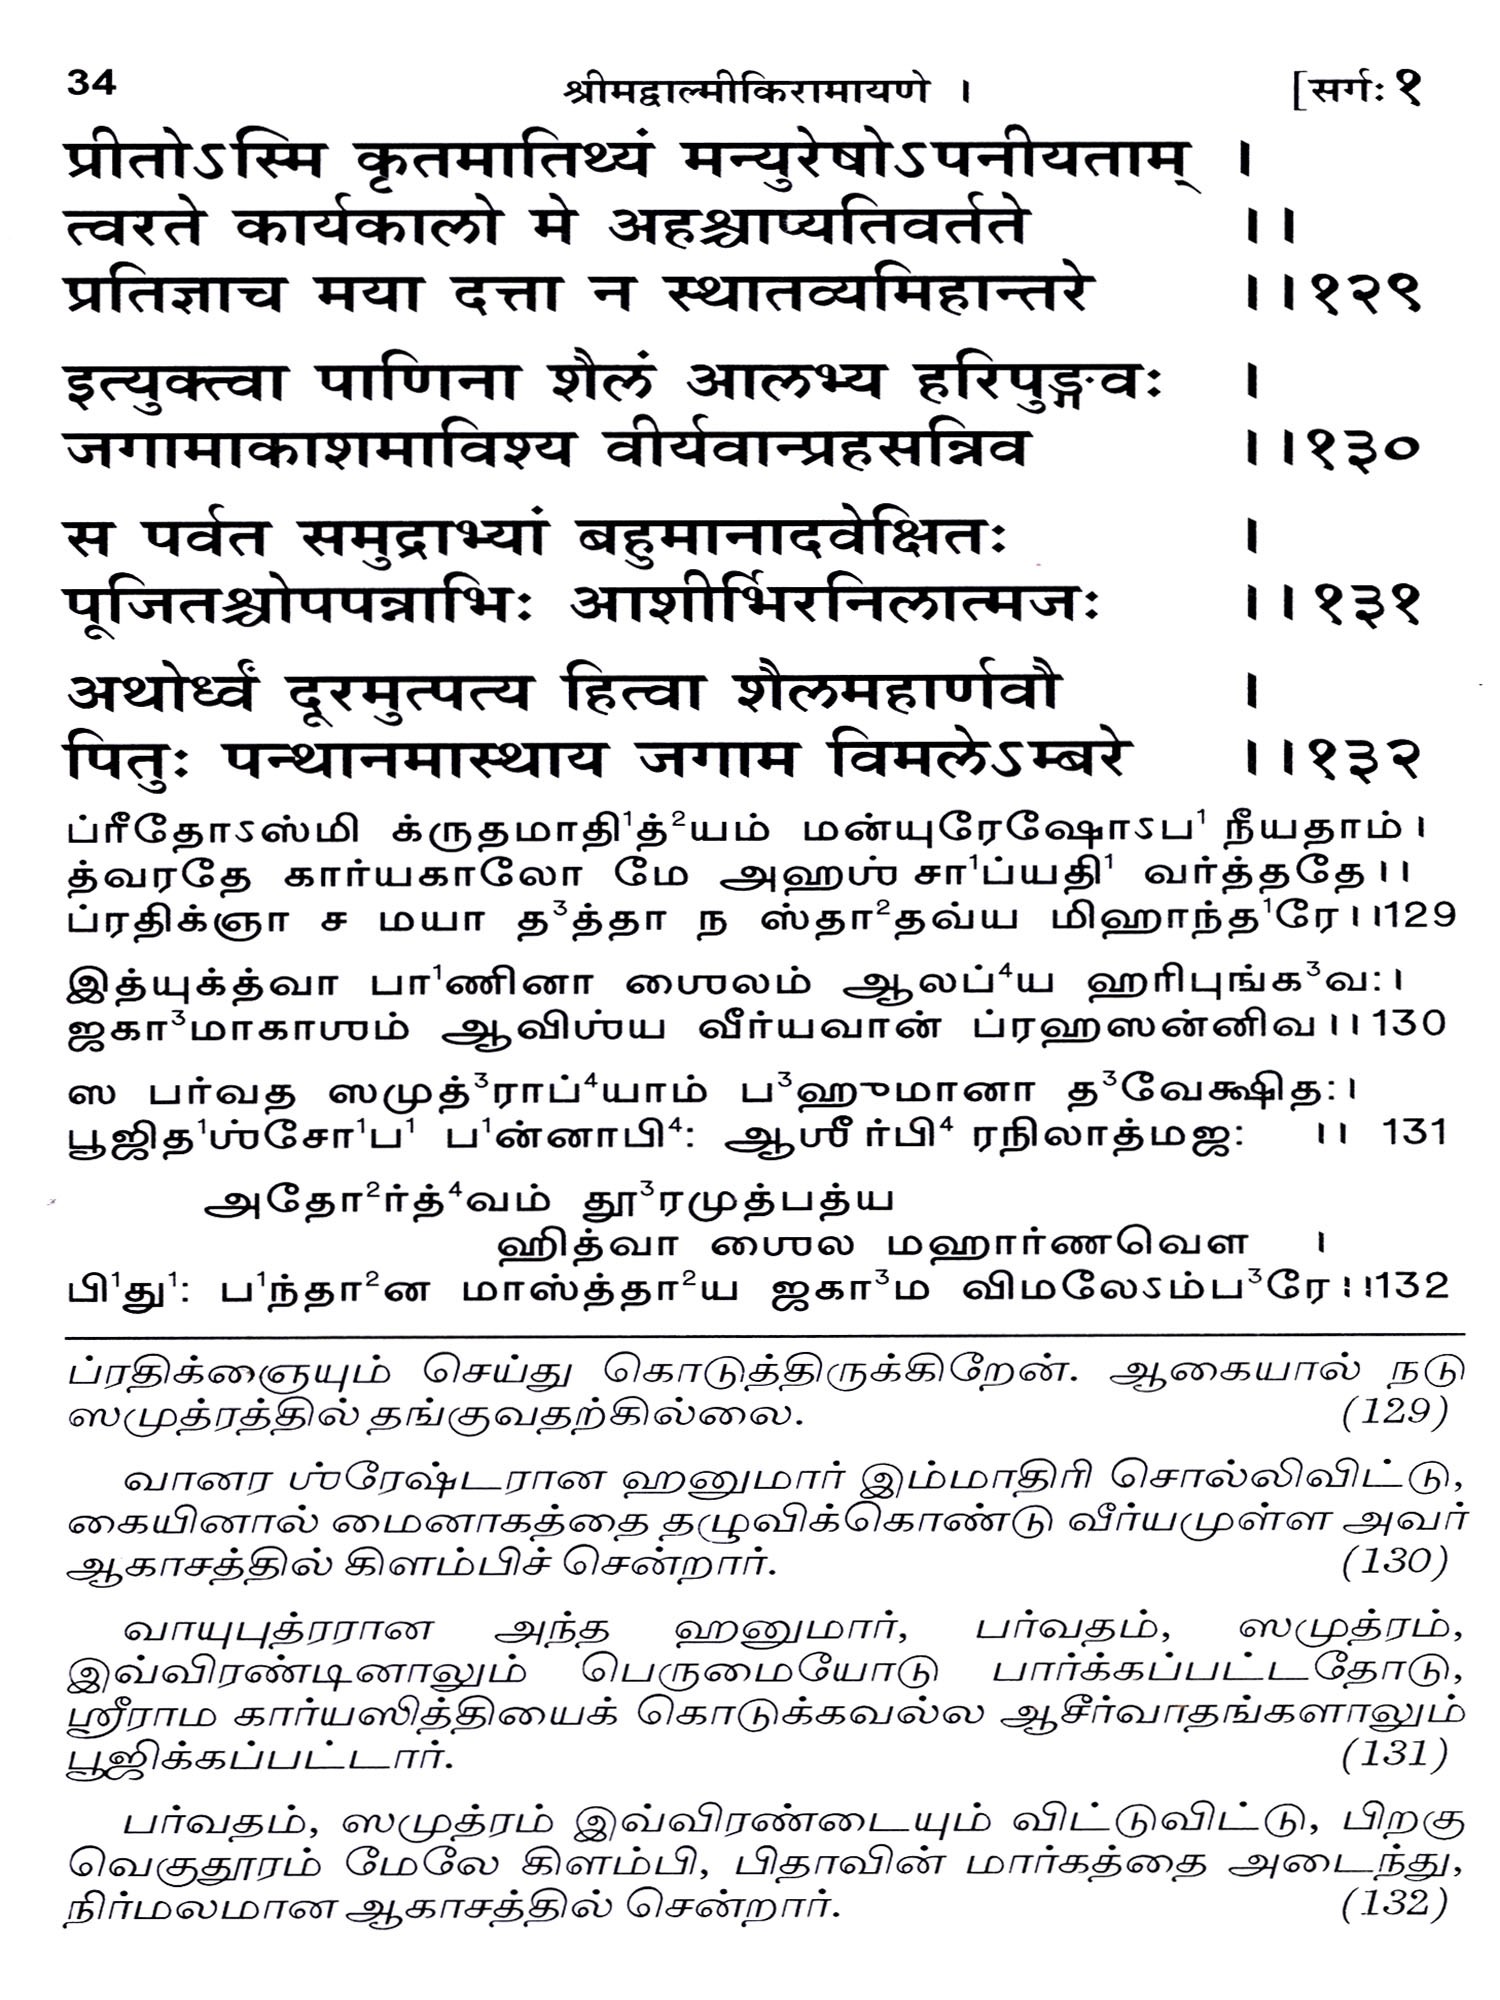 34
श्रीमद्वाल्मीकिरामायणे ।
[सर्गः १
प्रीतोऽस्मि कृतमातिथ्यं मन्युरेषोऽपनीयताम् ।
त्वरते कार्यकालो मे अहश्चाप्यतिवर्तते ।।
प्रतिज्ञाच मया दत्ता न स्थातव्यमिहान्तरे ।।१२९
इत्युक्त्वा पाणिना शैलं आलभ्य हरिपुङ्गवः ।
जगामाकाशमाविश्य वीर्यवान्प्रहसन्निव ।।१३०
स पर्वत समुद्राभ्यां बहुमानादवेक्षितः ।
पूजितश्चोपपन्नाभिः आशीर्भिरनिलात्मजः ।।१३१
अथोर्ध्वं दूरमुत्पत्य हित्वा शैलमहार्णवौ ।
पितुः पन्थानमास्थाय जगाम विमलेऽम्बरे ।।१३२
ப்ரீதோऽஸ்மி க்ருதமாதி¹த்²யம் மன்யுரேஷோऽப¹ நீயதாம்।
த்வரதே கார்யகாலோ மே அஹஶ் சா¹ப்யதி¹ வர்த்ததே।।
ப்ரதிக்ஞா ச மயா த³த்தா ந ஸ்தா²தவ்ய மிஹாந்த¹ரே।।129
இத்யுக்த்வா பா¹ணினா ஶைலம் ஆலப்⁴ய ஹரிபுங்க³வ:।
ஜகா³மாகாஶம் ஆவிஶ்ய வீர்யவான் ப்ரஹஸன்னிவ।।130
ஸ பர்வத ஸமுத்³ராப்⁴யாம் ப³ஹுமானா த³வேக்ஷித:।
பூஜித¹ஶ்சோ¹ப¹ ப¹ன்னாபி⁴: ஆஶீர்பி⁴ ரநிலாத்மஜ: ।। 131
அதோ²ர்த்⁴வம் தூ³ரமுத்பத்ய
ஹித்வா ஶைல மஹார்ணவௌ ।
பி¹து¹: ப¹ந்தா²ன மாஸ்த்தா²ய ஜகா³ம விமலேऽம்ப³ரே।।132
ப்ரதிக்ஞையும் செய்து கொடுத்திருக்கிறேன். ஆகையால் நடு
ஸமுத்ரத்தில் தங்குவதற்கில்லை. (129)
வானர ஶ்ரேஷ்டரான ஹனுமார் இம்மாதிரி சொல்லிவிட்டு,
கையினால் மைனாகத்தை தழுவிக்கொண்டு வீர்யமுள்ள அவர்
ஆகாசத்தில் கிளம்பிச் சென்றார். (130)
வாயுபுத்ரரான அந்த ஹனுமார், பர்வதம், ஸமுத்ரம்,
இவ்விரண்டினாலும் பெருமையோடு பார்க்கப்பட்டதோடு,
ஸ்ரீராம கார்யஸித்தியைக் கொடுக்கவல்ல ஆசீர்வாதங்களாலும்
பூஜிக்கப்பட்டார். (131)
பர்வதம், ஸமுத்ரம் இவ்விரண்டையும் விட்டுவிட்டு, பிறகு
வெகுதூரம் மேலே கிளம்பி, பிதாவின் மார்கத்தை அடைந்து,
நிர்மலமான ஆகாசத்தில் சென்றார். (132)